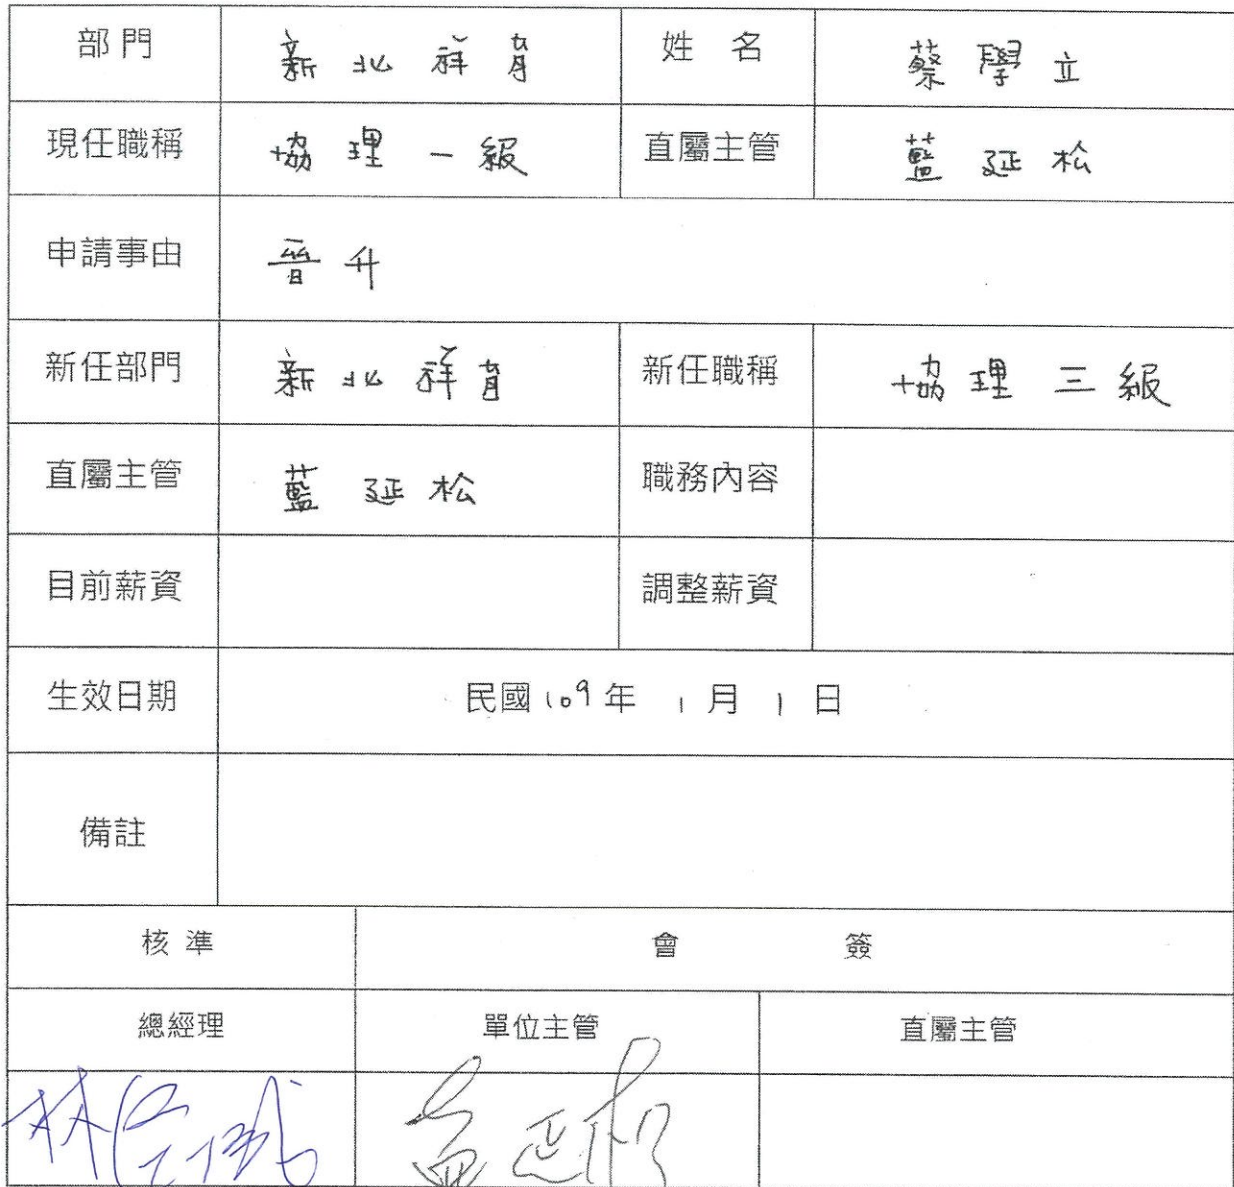 部門 新北祥育 姓名 蔡學立
現任職稱 協理一級 直屬主管 藍延松
申請事由 晉升
新任部門 新北祥育 新任職稱 協理三級
直屬主管 藍延松 職務內容
目前薪資 調整薪資
生效日期 民國109年1月1日
備註
核準 會簽
總經理 單位主管 直屬主管